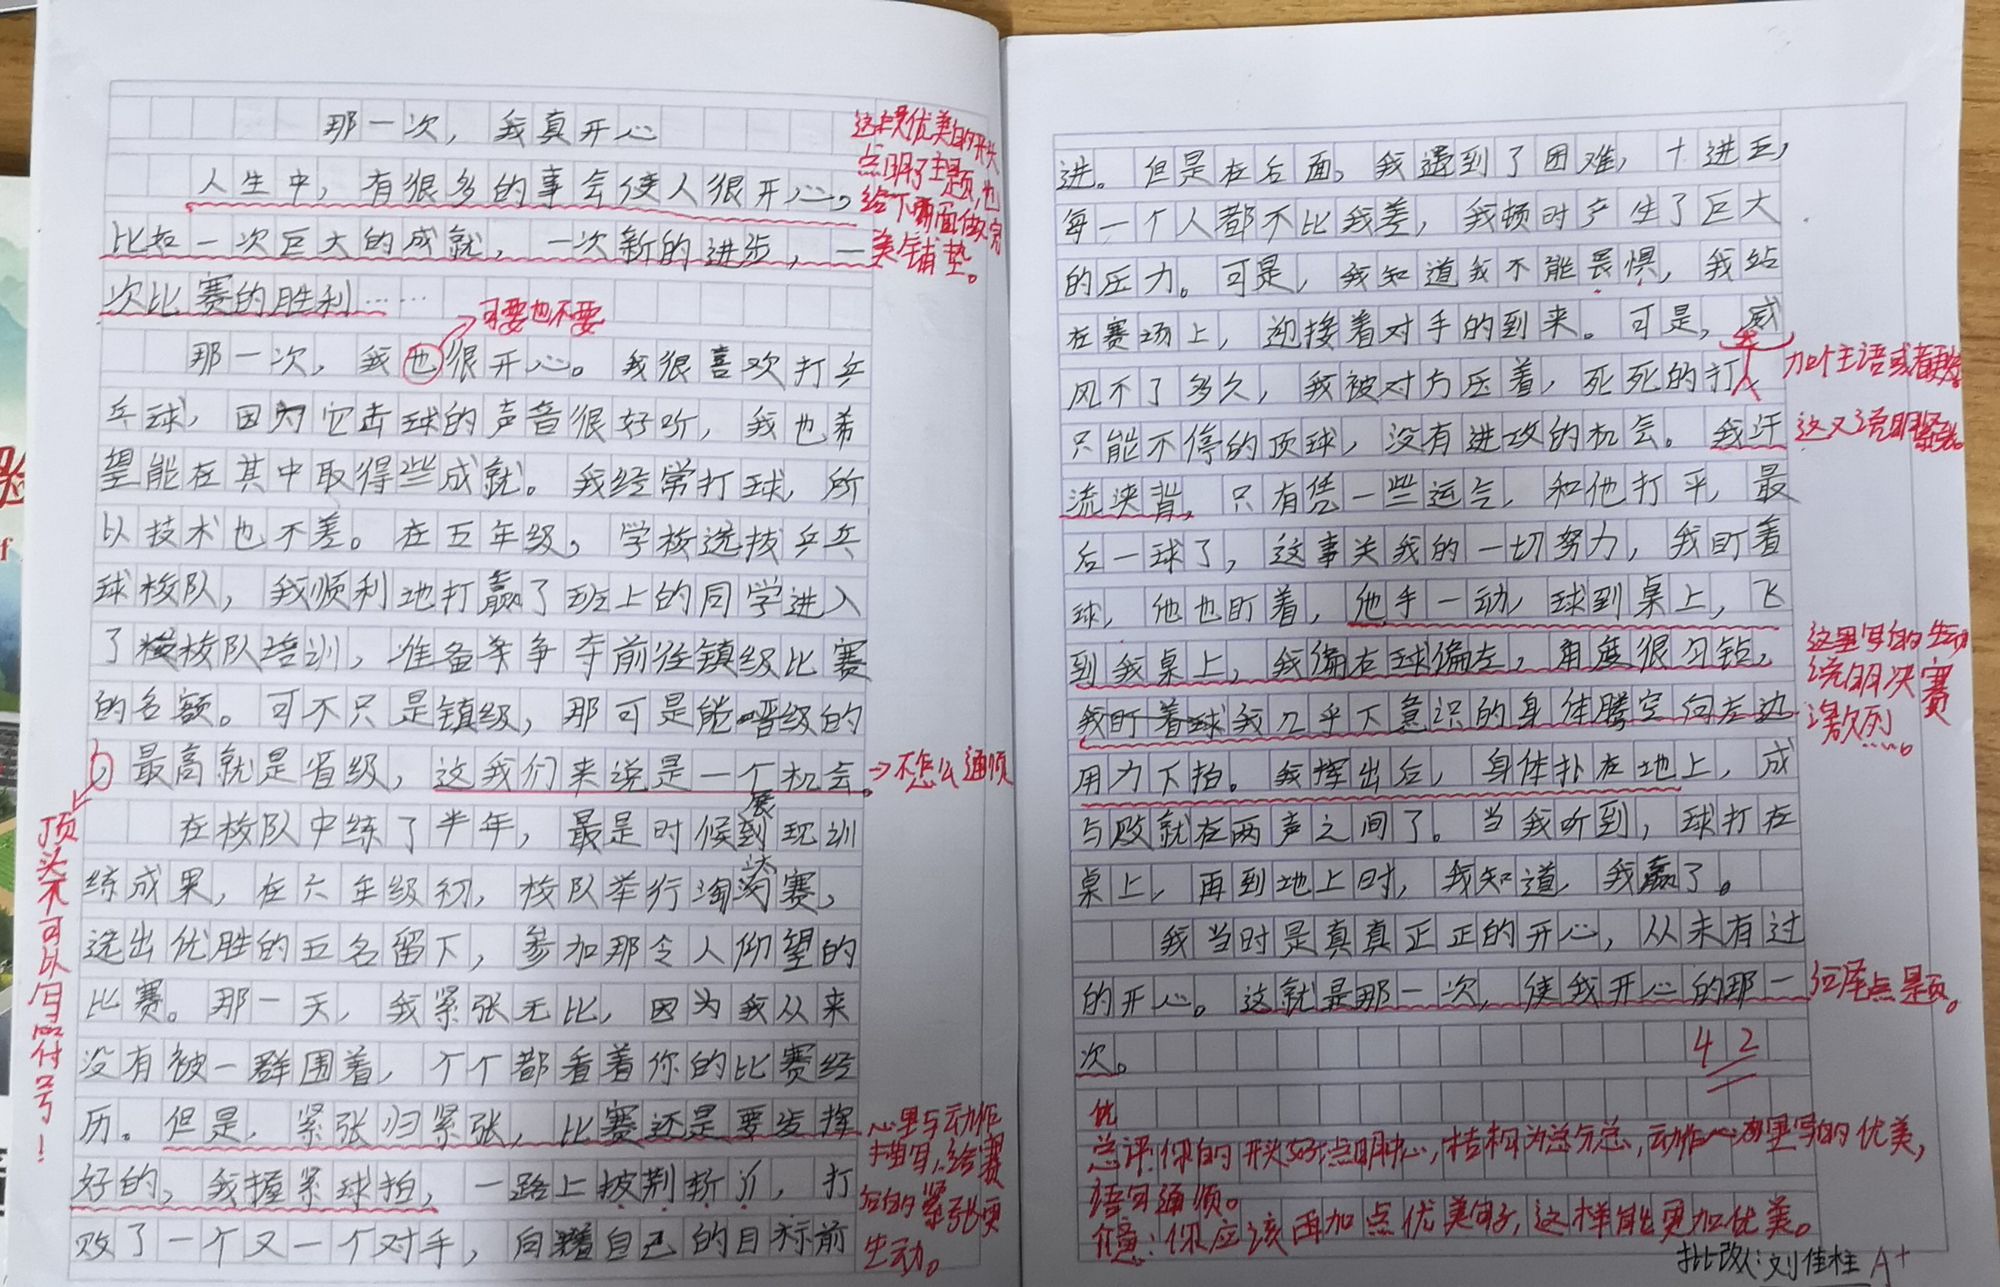 那一次，我真开心
人生中，有很多的事会使人很开心，
比如一次巨大的成就，一次新的进步，一
次比赛的胜利……
那一次，我也很开心。我很喜欢打乒
乓球，因为它击球的声音很好听，我也希
望能在其中取得些成就。我经常打球，所
以技术也不差。在五年级，学校选拔乒乓
球校队，我顺利地打赢了班上的同学进入
了校队培训，准备争夺前往镇级比赛
的名额。可不只是镇级，那可是能晋级的
，最高就是省级，这我们来说是一个机会。
在校队中练了半年，最是时候到展现训
练成果，在六年级初，校队举行淘汰赛，
选出优胜的五名留下，参加那令人仰望的
比赛。那一天，我紧张无比，因为我从来
没有被一群围着，个个都看着你的比赛经
历。但是，紧张归紧张，比赛还是要发挥
好的，我握紧球拍，一路上披荆斩爪，打
败了一个又一个对手，向着自己的目标前
这段优美的开头
点明了主题，也
给下面做完
美铺垫。
可要也不要
→不怎么通顺
顶头不可以写符号！
心里与动作
描写，给赛
后的紧张更
生动。
进。但是在后面，我遇到了困难，十进五，
每一个人都不比我差，我顿时产生了巨大
的压力。可是，我知道我不能畏惧，我站
在赛场上，迎接着对手的到来。可是，威
风不了多久，我被对方压着，死死的打，
只能不停的顶球，没有进攻的机会。我汗
流浃背，只有凭一些运气，和他打平，最
后一球了，这事关我的一切努力，我盯着
球，他也盯着，他手一动，球到桌上，飞
到我桌上，我偏右球偏左，角度很刁钻，
我盯着球我几乎下意识的身体腾空向左边
用力下拍。我挥出后，身体扑在地上，成
与败就在两声之间了。当我听到，球打在
桌上，再到地上时，我知道，我赢了。
我当时是真真正正的开心，从未有过
的开心。这就是那一次，使我开心的那一
次。
加个主语或者
这又说明紧张。
这里写的生动
说明决赛
激烈。
结尾点题。
42
优
总评：你的开头好，点明中心，结构为总分总，动作心里写的优美，
语句通顺。
建意：你应该再加点优美句子，这样能更加优美。
批改：刘佳桂 A+